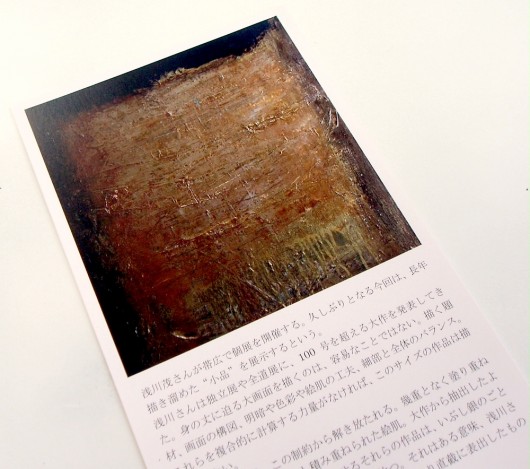 浅川茂さんが帯広で個展を開催する。久しぶりとなる今回は、長年
描き溜めた“小品”を展示するという。
浅川さんは独立展や全道展に、100号を超える大作を発表してき
た。身の丈に迫る大画面を描くのは、容易なことではない。描く題
材、画面の構図、明暗や色彩や絵肌の工夫、細部と全体のバランス。
それらを複合的に計算する力量がなければ、このサイズの作品は描
この制約から解き放たれる。幾重となく塗り重ね
積み重ねられた絵肌。大作から抽出したよ
るそれらの作品は、いぶし銀のこと
それはある意味、浅川さ
直截に表出したもの